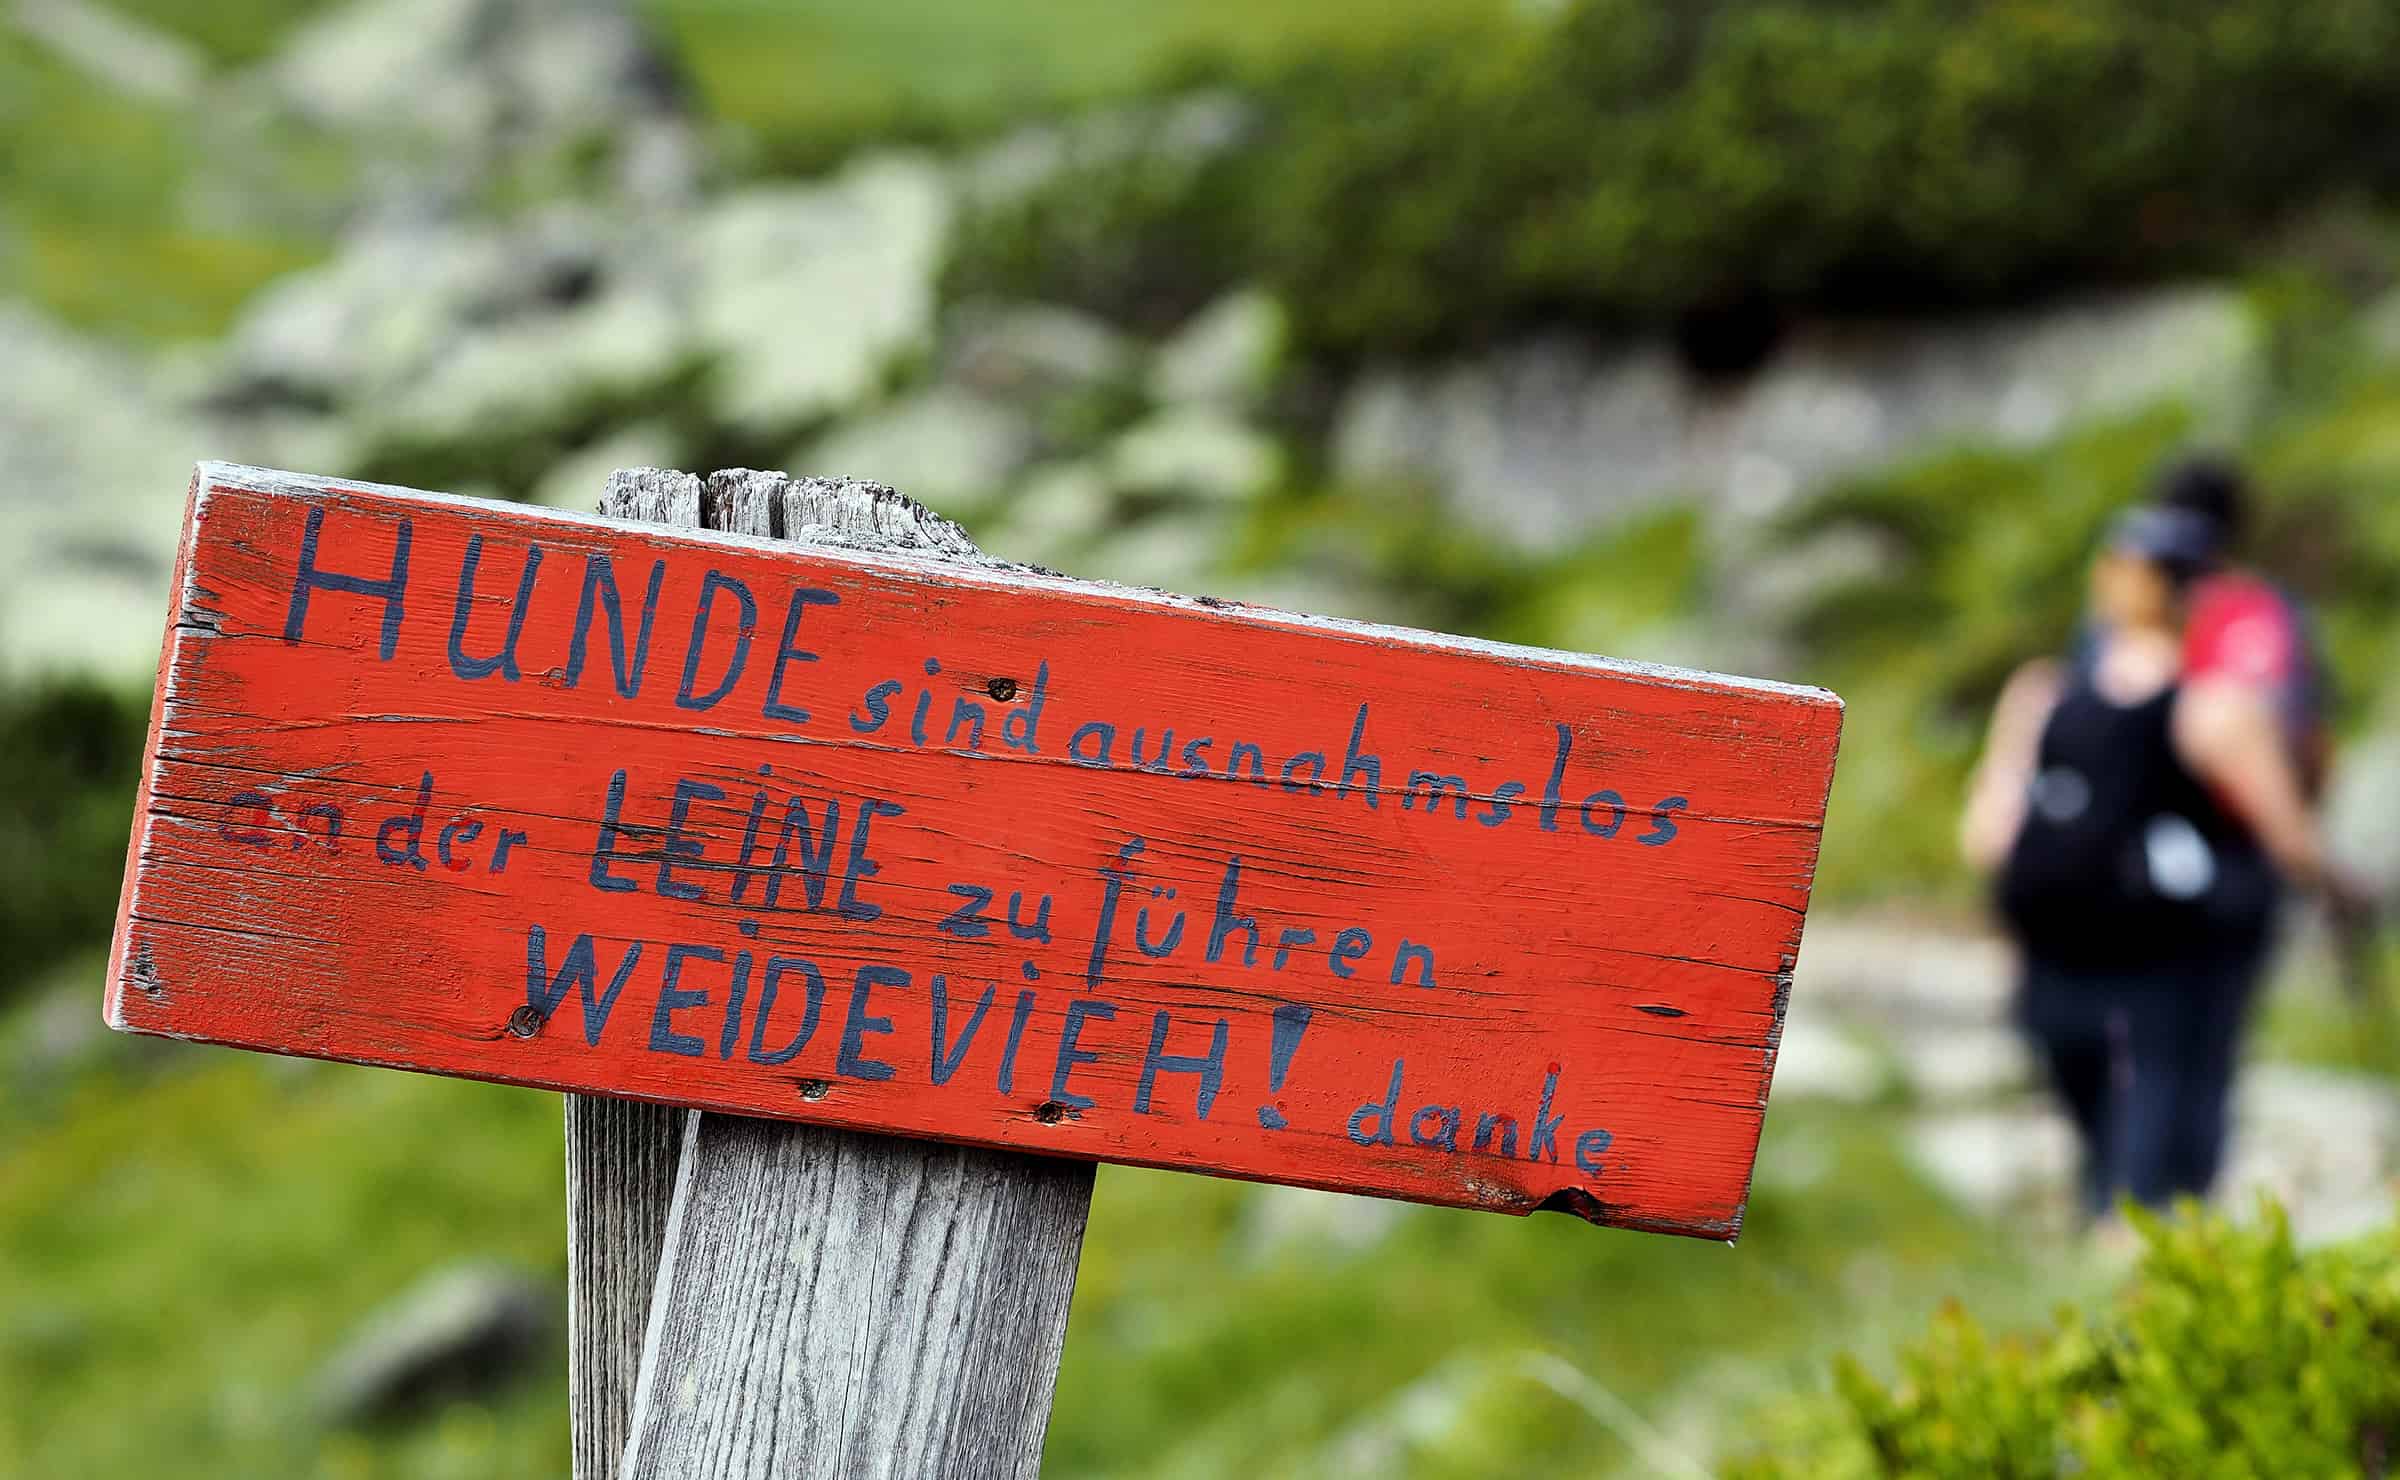 HUNDE sind ausnahmslos
an der LEiNE zu führen
WEiDEViEH! danke